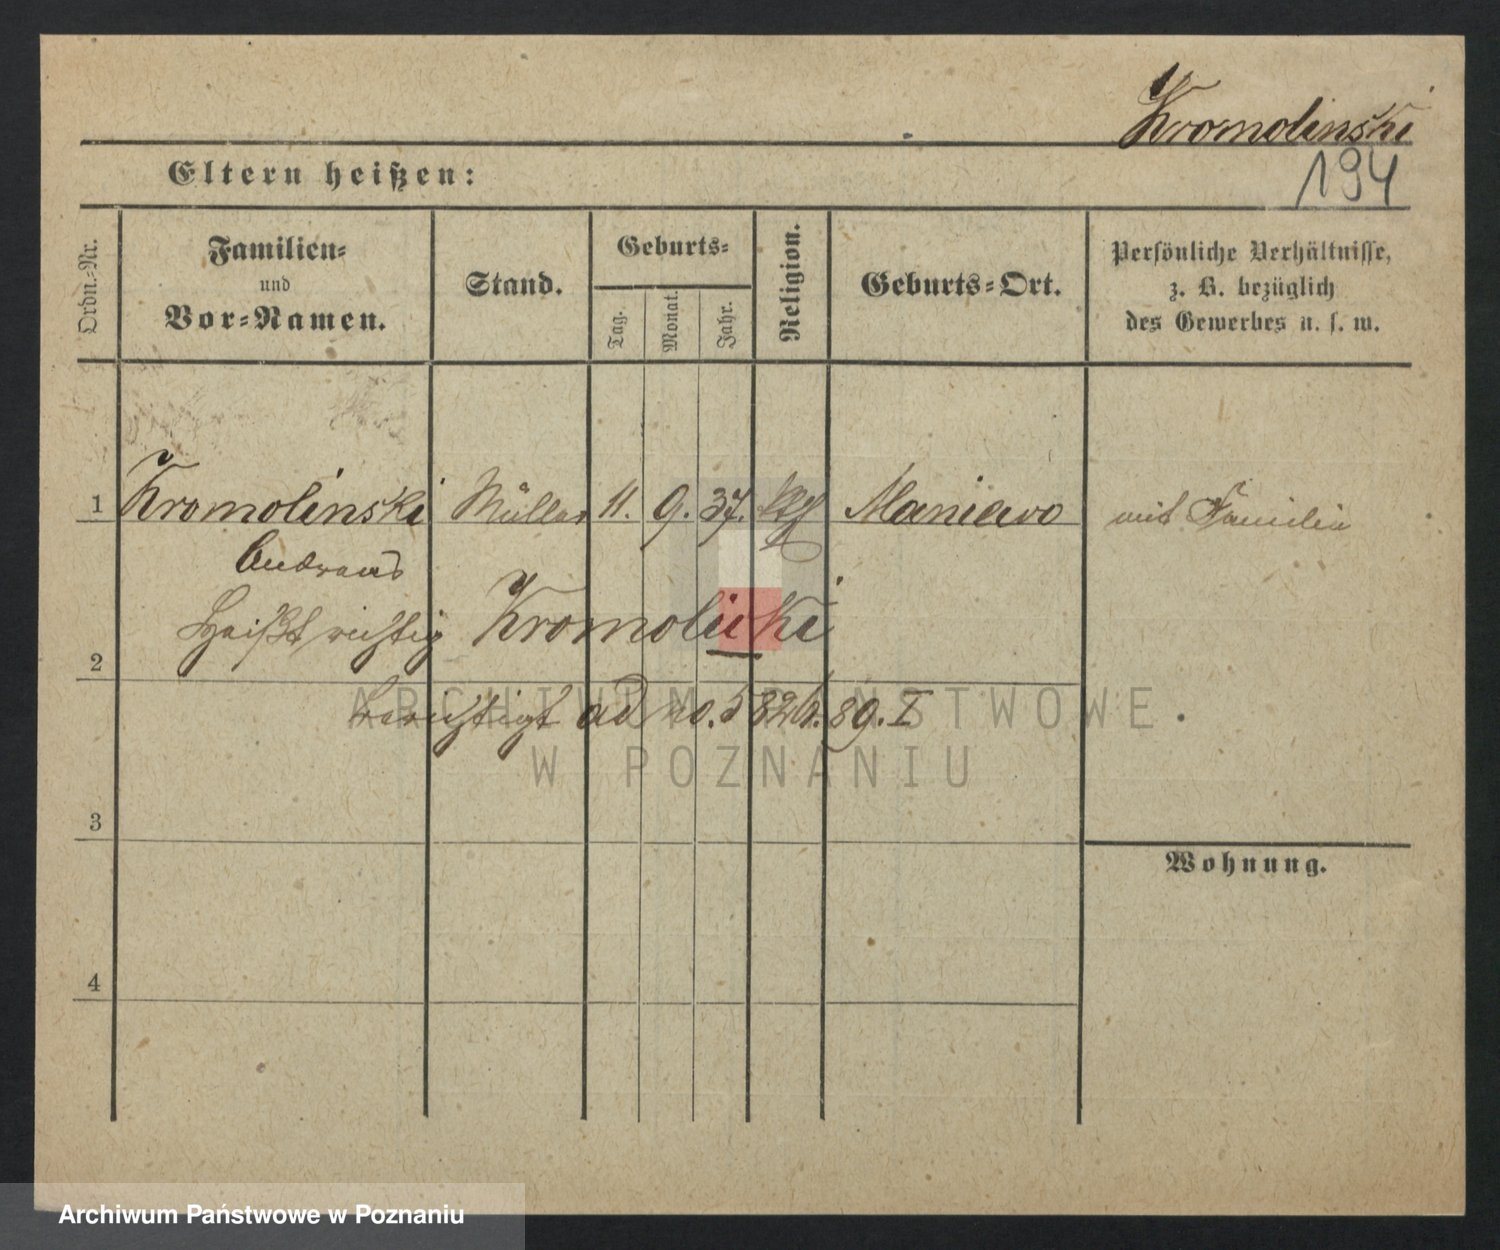 Kromolinski
194
Eltern heißen:
Ordn.-Nr.
Familien-
und
Vor-Namen.
Stand.
Geburts-
Tag.
Monat.
Jahr.
Religion.
Geburts-Ort.
Persönliche Verhältnisse,
z. B. bezüglich
des Gewerbes u. s. w.
1 Kromolinski Müller 11. 9. 37. Maniewo mit Familie
Andreas
Heißt richtig Kromolicki
2
berichtigt ad no. 5 89. I
ARCHIWUM PAŃSTWOWE
W POZNANIU
3
Wohnung.
4
Archiwum Państwowe w Poznaniu